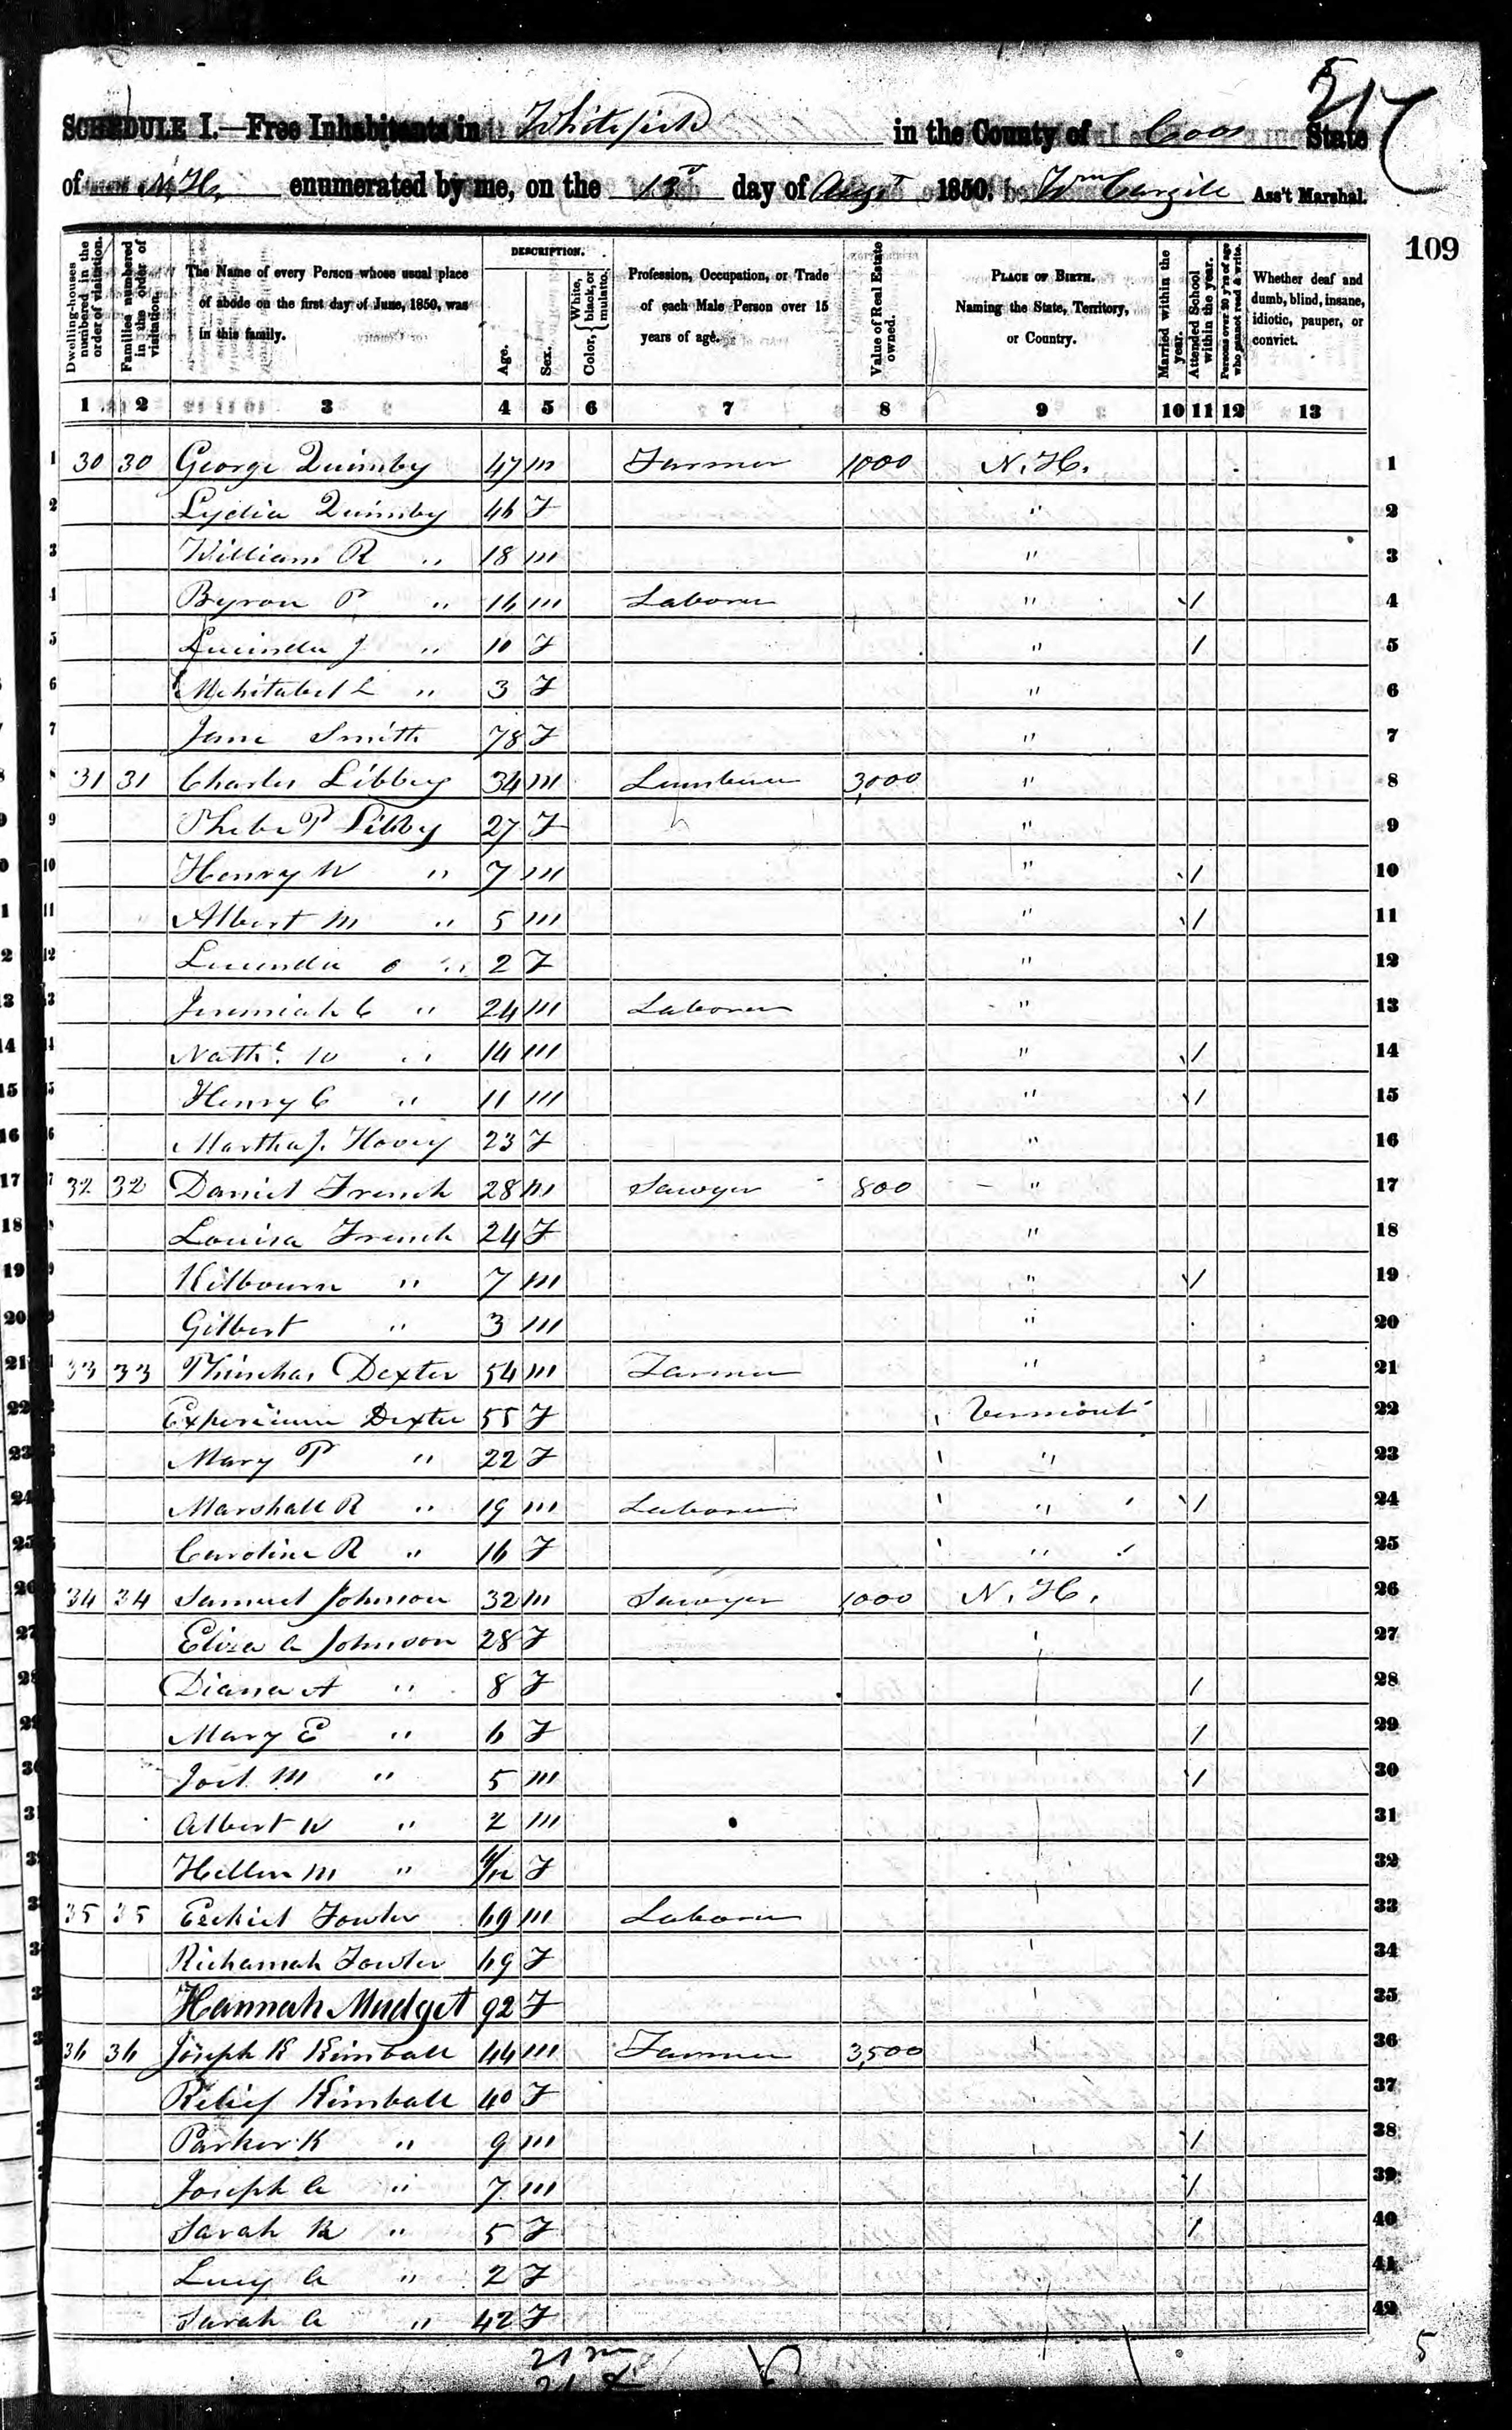 217
SCHEDULE I.—Free Inhabitants in Whitefield in the County of Coos State
of N.H. enumerated by me, on the 13th day of Augst 1850. Wm Cargill Ass't Marshal.
109
Dwelling-houses numbered in the order of visitation.
Families numbered in the order of visitation.
The Name of every Person whose usual place of abode on the first day of June, 1850, was in this family.
DESCRIPTION.
Age.
Sex.
Color, White, black, or mulatto.
Profession, Occupation, or Trade of each Male Person over 15 years of age.
Value of Real Estate owned.
PLACE OF BIRTH. Naming the State, Territory, or Country.
Married within the year.
Attended School within the year.
Persons over 20 y'rs of age who cannot read & write.
Whether deaf and dumb, blind, insane, idiotic, pauper, or convict.
1 2 3 4 5 6 7 8 9 10 11 12 13
1 30 30 George Quimby 47 m Farmer 1000 N.H. 1
2 Lydia Quimby 46 F " 2
3 William R " 18 m " 3
4 Byron P " 16 m Laborer " / 4
5 Lucinda J " 10 F " / 5
6 Mehitabel L " 3 F " 6
7 Jane Smith 78 F " 7
8 31 31 Charles Libbey 34 m Lumberer 3,000 " 8
9 Phebe P Libby 27 F " 9
10 Henry W " 7 m " / 10
11 Albert M " 5 m " / 11
12 Lucinda O " 2 F " 12
13 Jeremiah C " 24 m Laborer " 13
14 Nathl W " 14 m " / 14
15 Henry C " 11 m " / 15
16 Martha J. Hovey 23 F " 16
17 32 32 Daniel French 28 m Sawyer 800 " 17
18 Louisa French 24 F " 18
19 Kilbourn " 7 m " / 19
20 Gilbert " 3 m " 20
21 33 33 Phinehas Dexter 54 m Farmer " 21
22 Experience Dexter 55 F Vermont 22
23 Mary P " 22 F " 23
24 Marshall R " 19 m Laborer " / 24
25 Caroline R " 16 F " 25
26 34 34 Samuel Johnson 32 m Sawyer 1000 N.H. 26
27 Eliza A Johnson 28 F 27
28 Diana A " 8 F / 28
29 Mary E " 6 F / 29
30 Joel M " 5 m / 30
31 Albert W " 2 m 31
32 Hellen M " /12 F 32
33 35 35 Ezekiel Fowler 69 m Laborer 33
34 Fowler 69 F 34
35 Hannah Mudget 92 F 35
36 36 36 Joseph K Kimball 44 m Farmer 3,500 36
37 Relief Kimball 40 F 37
38 Parker K " 9 m / 38
39 Joseph A " 7 m / 39
40 Sarah R " 5 F / 40
41 Lucy A " 2 F 41
42 Sarah A " 42 F 42
21 m
21 F
5